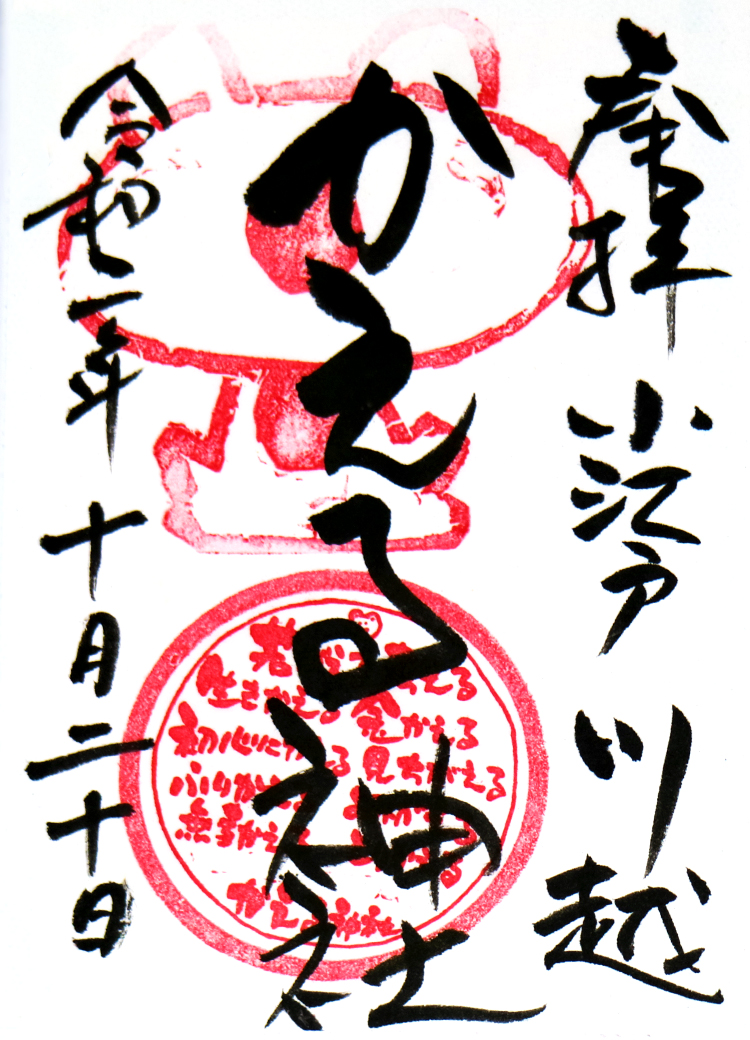 奉拝 小江戸 川越
かえる神社
令和二年 十月二十日
若
える
生きかえる
金かえる
初心にかえる
見ちがえる
無事かえる
かえる神社